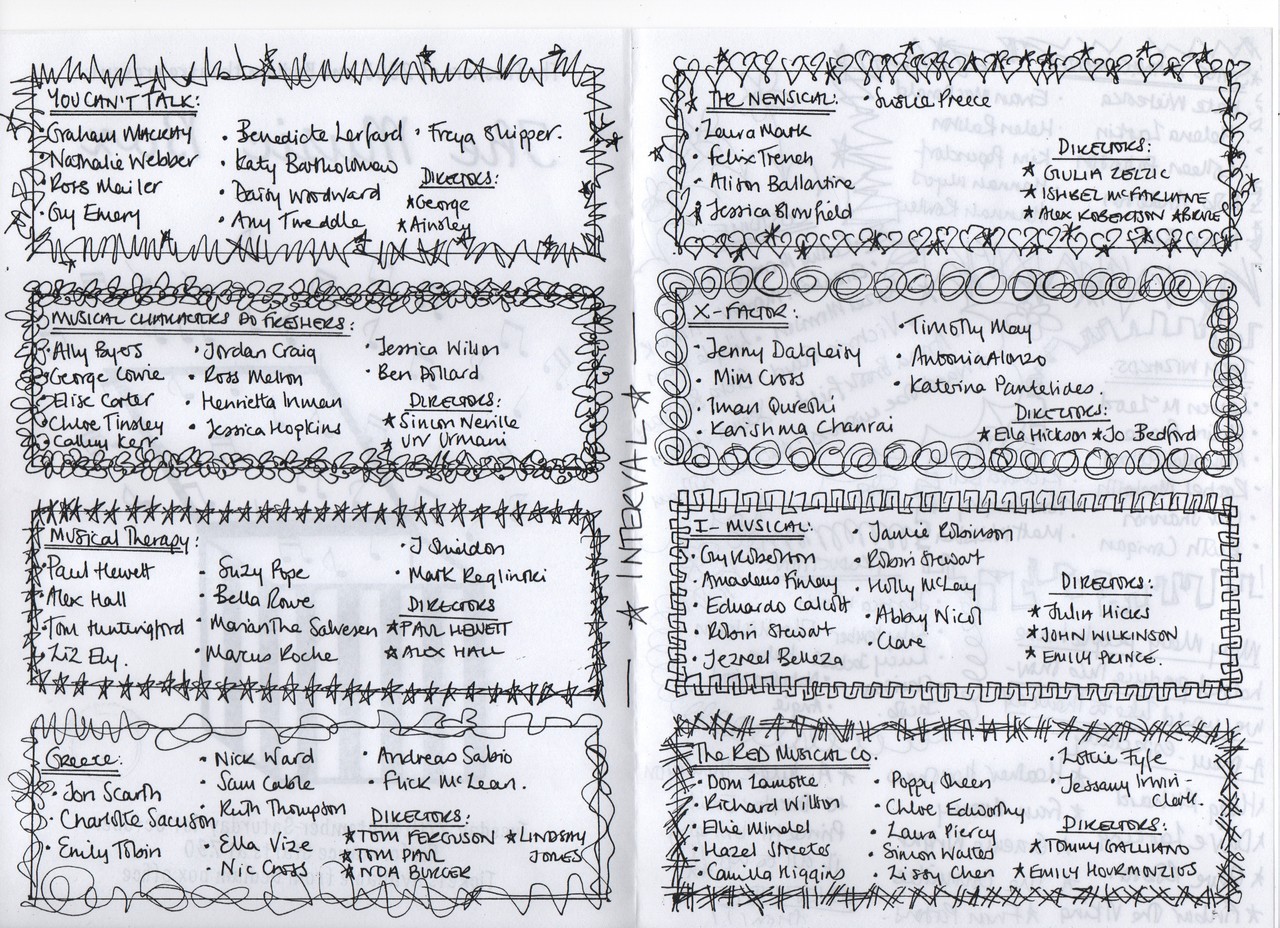 YOU CAN'T TALK:
• Graham MACKAY
• Nathalie Webber
• Ross Mailer
• Guy Emery
• Benedicte Lerfard
• Katy Bartholomaw
• Daisy Woodward
• Amy Tweddle
• Freya Shipper.
DIRECTORS:
★ George
★ Ainsley
MUSICAL CHARACTERS DO FRESHERS:
• Ally Byers
• George Cowie
• Elise Carter
• Chloe Tinsley
• Calley Kerr
• Jordan Craig
• Ross Mellon
• Henrietta Inman
• Jessica Hopkins
• Jessica Wilson
• Ben Pollard
DIRECTORS:
★ Simon Neville
★ Urv Urmani
Musical Therapy:
• Paul Hewett
• Alex Hall
• Tom Huntingford
• Liz Ely.
• Suzy Pope
• Bella Rowe
• Mariantha Salvesen
• Marcus Roche
• J Sheldon
• Mark Raglinski
DIRECTORS
★ PAUL HEWETT
★ ALEX HALL
Greece:
• Jon Scarth
Charlotte Sacuson
• Emily Tobin
• Nick Ward
• Sam Cable
• Ruth Thompson
• Ella Vize
• Nic Cross
• Andreas Sabio
• Flick McLean.
DIRECTORS:
★ TOM FERGUSON
★ TOM PAUL
★ NDA BURGER
★ LINDSAY
JONES
★ INTERVAL ★
THE NEWSICAL:
• Susie Preece
• Laura Mark
• Felix Trench
• Alison Ballantine
• Jessica Blomfield
DIRECTORS:
★ GIULIA ZELZIC
★ ISHBEL McFARLANE
★ ALEX ROBERTSON
X-FACTOR:
• Jenny Dalgleish
• Mim Cross
• Iman Qureshi
• Karishma Chanrai
• Timothy May
• Antonia Alonzo
• Katerina Pantelides.
DIRECTORS:
★ Ella Hickson ★ Jo Bedford
I-MUSICAL:
• Guy Robertson
• Amadeus Finlay
• Eduardo Calcott
• Robin Stewart
• Jezreel Belleza
• Jamie Robinson
• Robin Stewart
• Holly McLay
• Abby Nicol
• Clare
DIRECTORS:
★ JULIA HICKS
★ JOHN WILKINSON
★ EMILY PRINCE.
The RED MUSICAL CO.
• Dom Lamotte
• Richard Wilson
• Ellie Mindel
• Hazel Streeter
• Camilla Higgins
• Poppy Sheen
• Chloe Edworthy
• Laura Piercy
• Simon Waites
• Lissy Chen
• Lottie Fyfe
• Jessamy Irwin-
Clark.
DIRECTORS:
★ TOMMY GALLIANO
★ EMILY HOURMOUZIOS